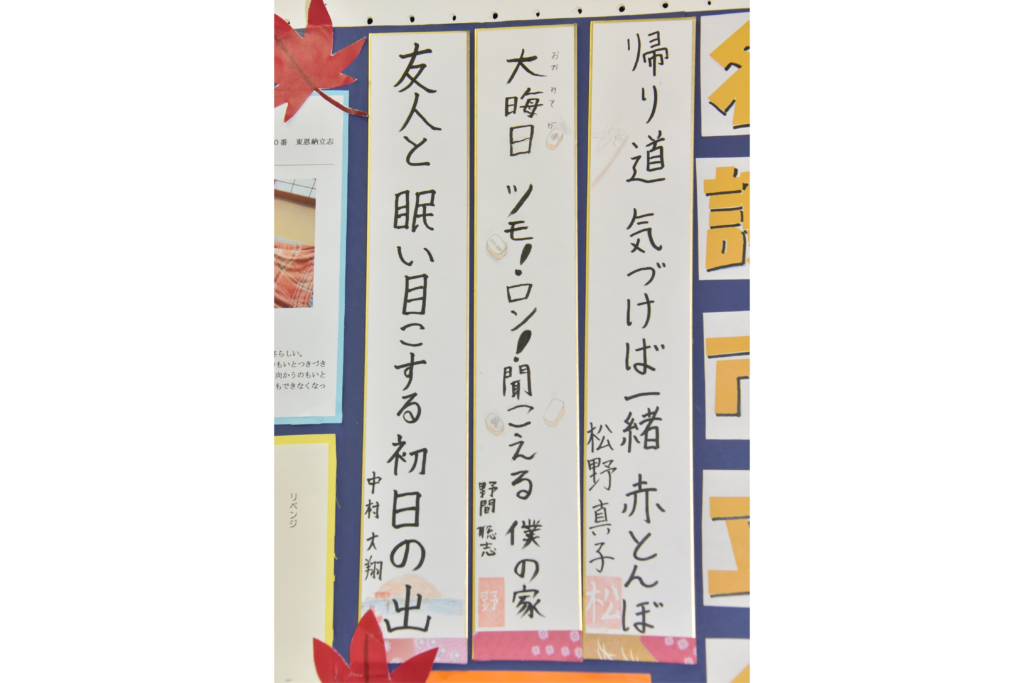 帰り道 気づけば一緒 赤とんぼ
松野真子
松
おおみそか
大晦日 ツモ!ロン!聞こえる 僕の家
野間 聡志
野
友人と 眠い目こする 初日の出
中村 大翔
0番 東恩納立志
らしい。
もいとつきづき
向かうのもいと
もできなくなっ
リベンジ